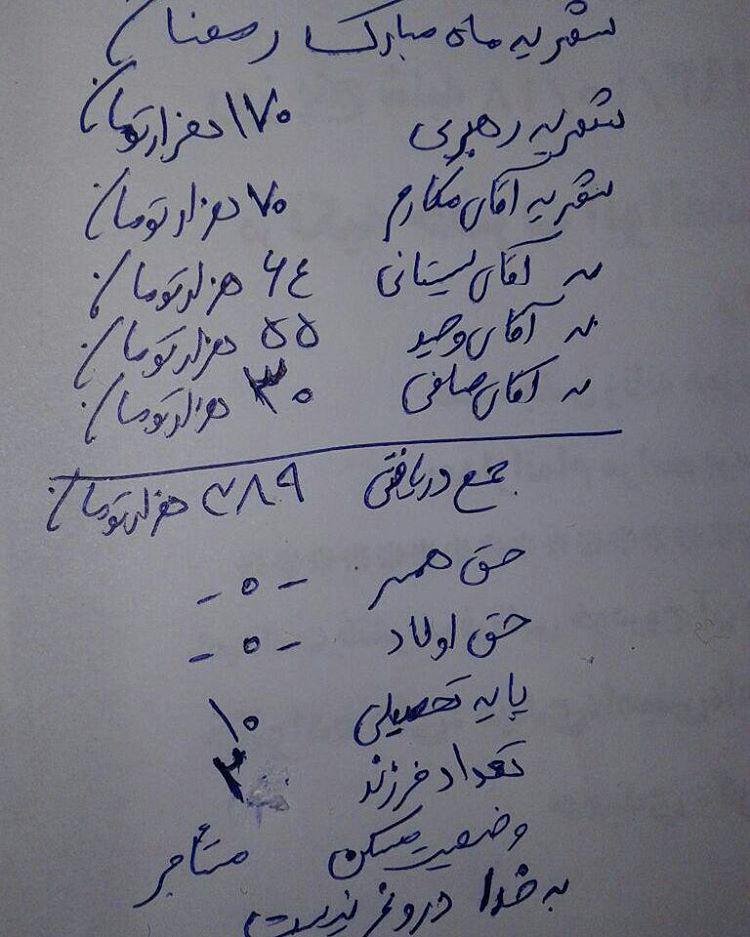 شهریه ماه مبارک رمضان
شهریه رهبری ۱۷۰ هزار تومان
شهریه آقای مکارم ۷۰ هزار تومان
〃 آقای سیستانی ۶٤ هزار تومان
〃 آقای وحید ۵۵ هزار تومان
〃 آقای صافی ۳۰ هزار تومان
جمع دریافتی ۳۸۹ هزار تومان
حق همسر -۰-
حق اولاد -۰-
پایه تحصیلی ۱۰
تعداد فرزند ۲
وضعیت مسکن مستأجر
به خدا دروغ نیست